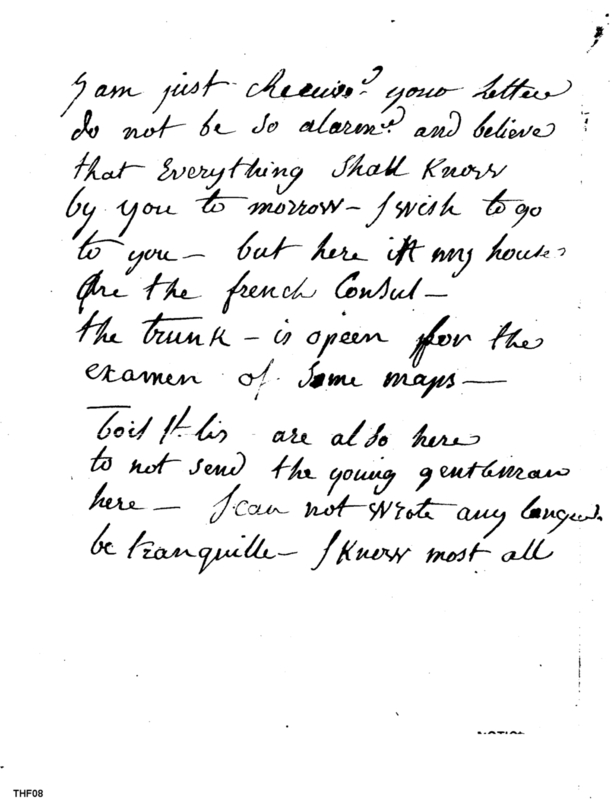 I am just Receiv.d your Letter
do not be so alarm.d and believe
that Everything Shall Know
by you to morrow - I wish to go
to you - but here in my house
Are the french Consul -
the trunk - is opeen for the
examen of Some maps -
are also here
to not send the young gentleman
here - I can not wrote any longer
be tranquille - I Know most all
THF08